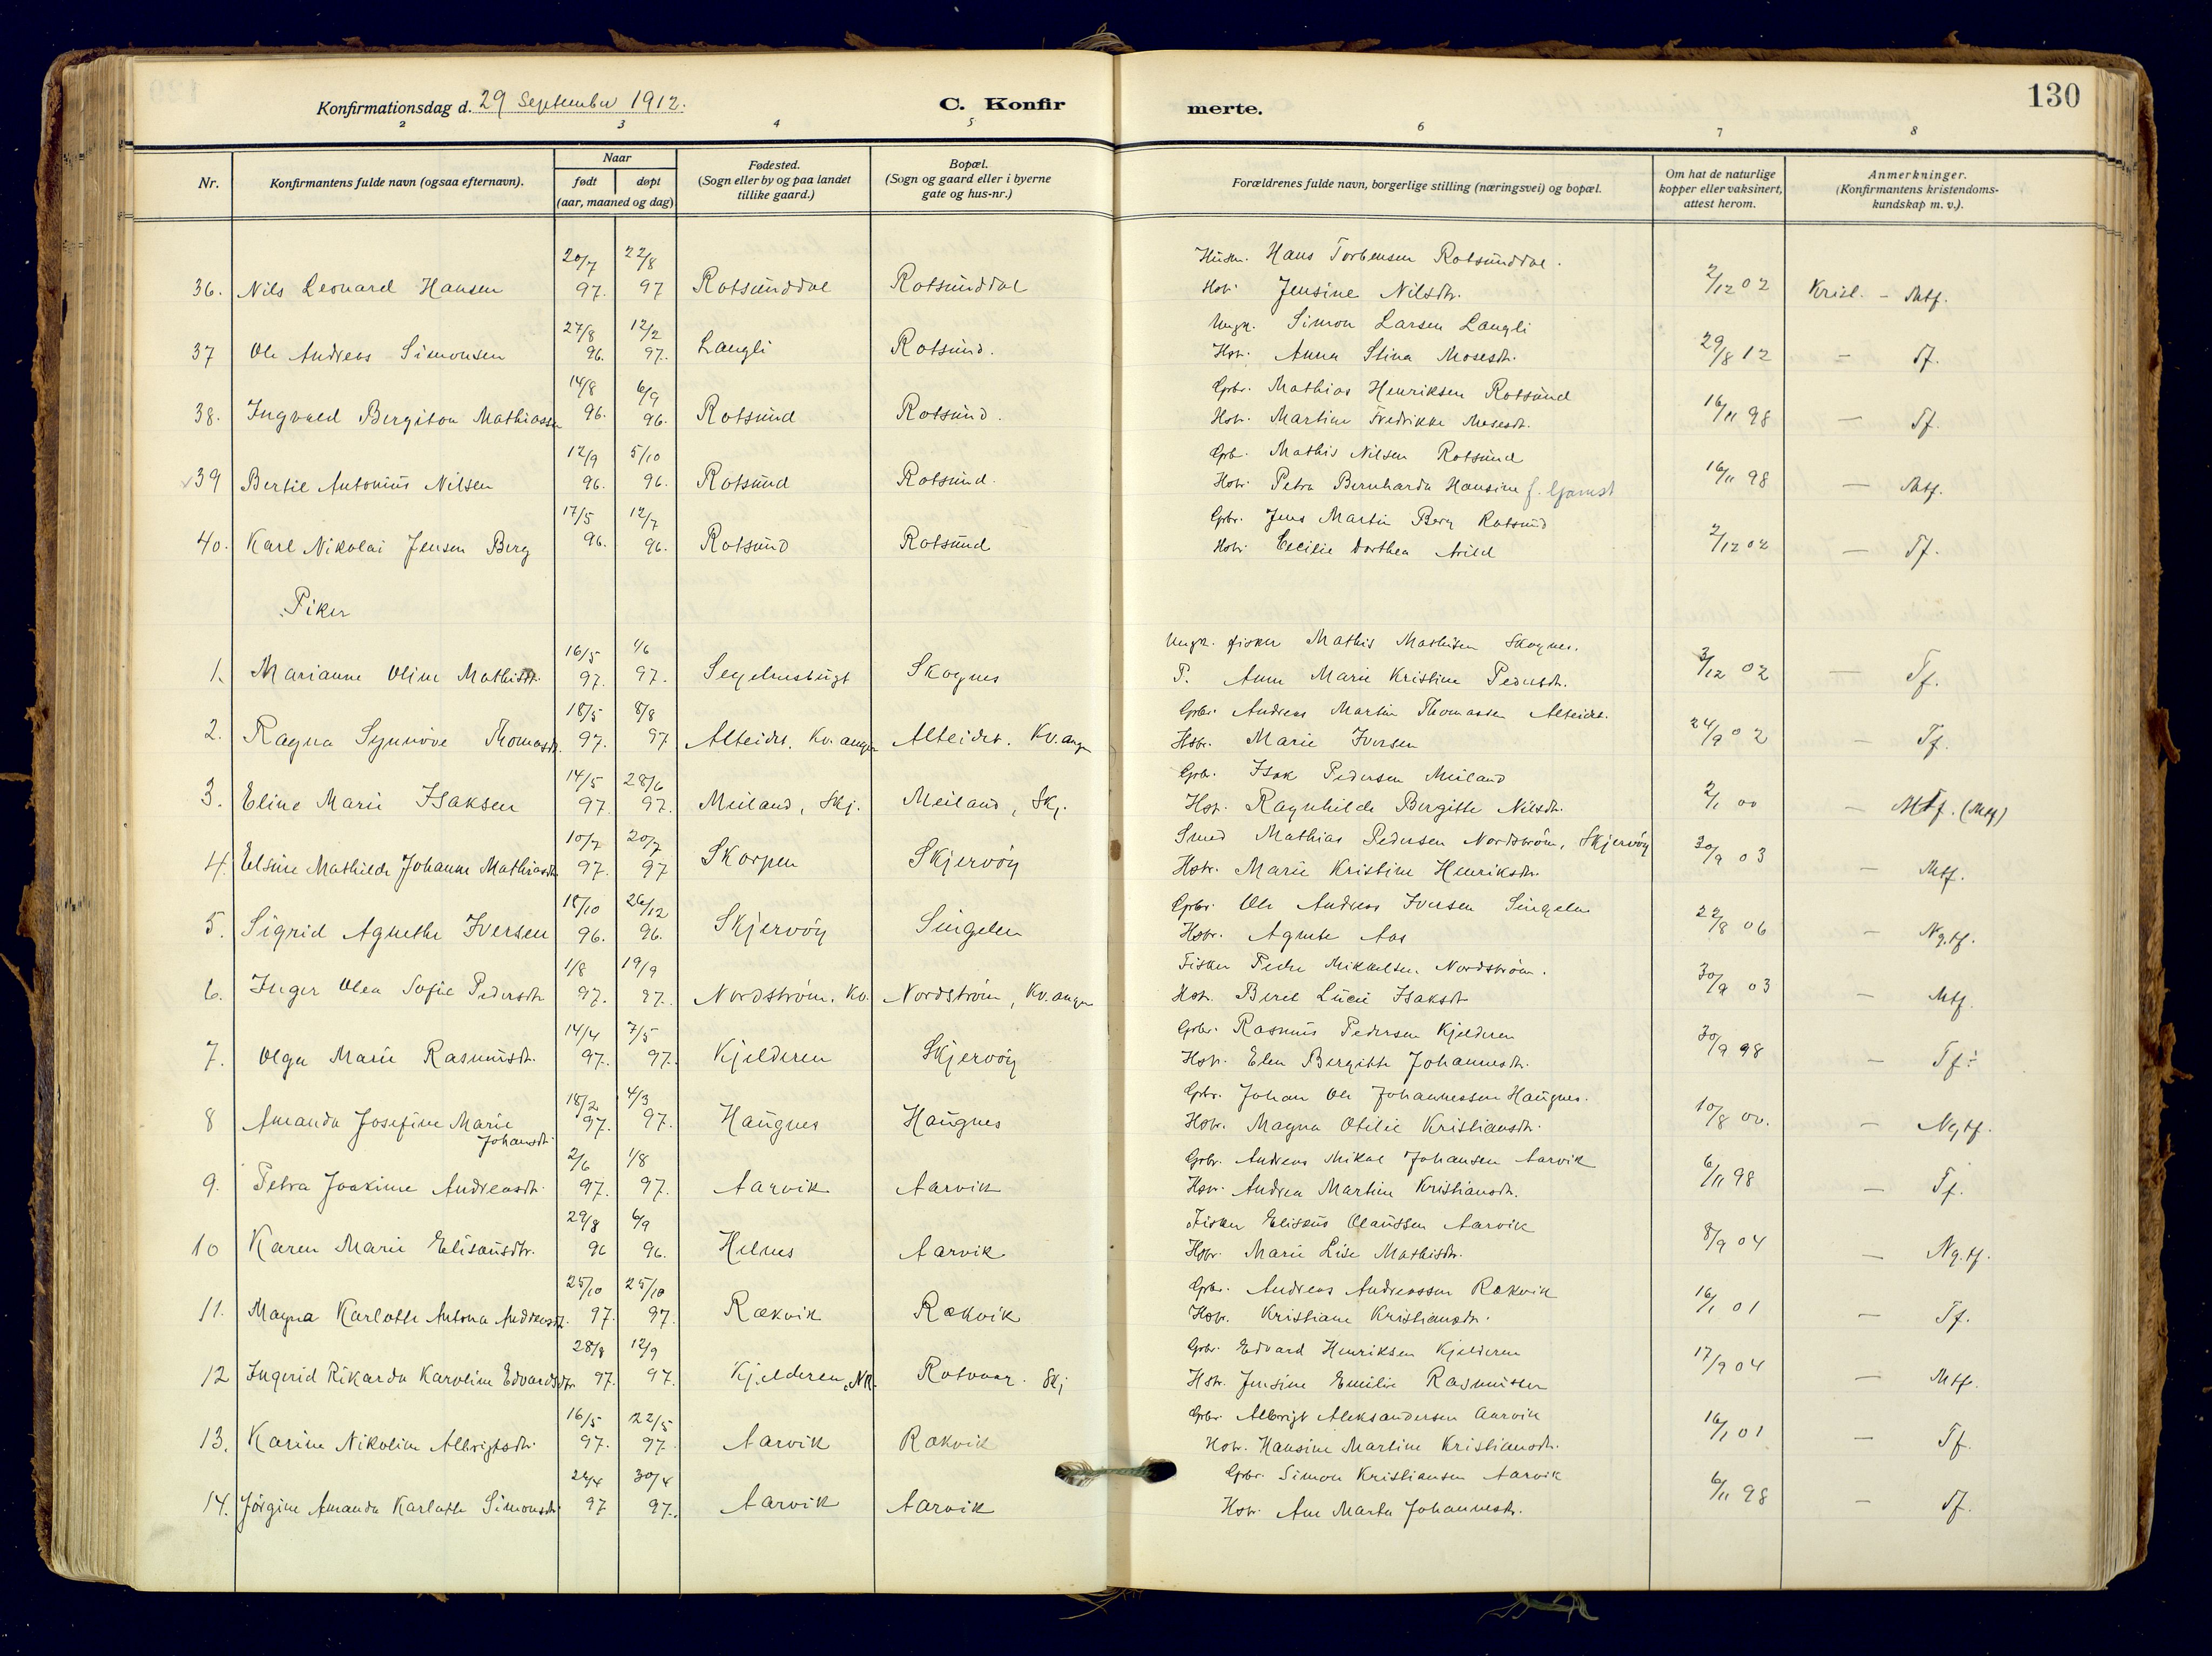 130
Konfirmationsdag d. 29 September 1912.
C. Konfir merte.
2 3 4 5 6 7 8
Nr.
Konfirmantens fulde navn (ogsaa efternavn).
Naar
født
døpt
(aar, maaned og dag)
Fødested.
(Sogn eller by og paa landet
tillike gaard.)
Bopæl.
(Sogn og gaard eller i byerne
gate og hus-nr.)
Forældrenes fulde navn, borgerlige stilling (næringsvei) og bopæl.
Om hat de naturlige
kopper eller vaksinert,
attest herom.
Anmerkninger.
(Konfirmantens kristendoms-
kundskap m. v.).
20/7 22/8 Husm. Hans Torbensen Rotsunddal.
36. Nils Leonard Hansen 97. 97 Rotsunddal Rotsunddal Hstr. Jensine Nilsdtr. 2/12 02 Krisl. - Mtf.
27/8 12/2 Ungk. Simon Larsen Langli
37 Ole Andreas Simonsen 96. 97. Langli Rotsund. Hstr. Anna Stina Mosesdtr. 29/8 12 - Tf.
14/8 6/9 Grbr. Mathias Henriksen Rotsund
38. Ingvald Bergiton Mathiassen 96. 96. Rotsund Rotsund. Hstr. Martine Fredrikke Mosesdt. 16/11 98 - Tf.
12/9 5/10 Grb. Mathis Nilsen Rotsund
39 Bertil Antonius Nilsen 96. 96. Rotsund Rotsund. Hstr. Petra Bernharda Hansine f. Gamst 16/11 98 - Mtf.
17/5 12/7 Grbr. Jens Martin Berg Rotsund
40. Karl Nikolai Jensen Berg 96. 96. Rotsund Rotsund Hstr. Cecilie Dorthea Arild 2/12 02 - Tf.
Piker
16/5 1/6 Ungk. fisker Mathis Mathisen Skognes.
1. Marianne Oline Mathisdtr. 97. 97. Segelnesbugt Skognes P. Anne Marie Kristine Pedersdt. 3/12 02 - Tf.
18/5 8/8 Grbr. Andreas Martin Thomassen Alteidet.
2. Ragna Synnöve Thomasdt. 97. 97 Alteidet. Kv.angen Alteidet. Kv.ang Hstr. Marie Iversen 24/9 02 - Tf.
14/5 28/6 Grbr. Isak Pedersen Meiland
3. Eline Marie Isaksen 97 97. Meiland, Skj. Meiland, Skj. Hstr. Ragnhilde Bergitte Nilsdt. 2/1 00 - Mtf. (Mtf)
10/7 20/7 Smed Mathias Pedersen Nordström, Skjervöy
4. Elsine Mathilde Johanne Mathiasdt 97. 97 Skorpen Skjervöy Hstr. Marie Kristine Henriksdtr. 30/9 03 - Mtf.
18/10 26/12 Grbr. Ole Andreas Iversen Singelen
5. Sigrid Agnethe Iversen 96. 96. Skjervöy Singelen Hstr. Agnete Aas 22/8 06 - Ng.tf.
1/8 19/9 Fisker Peder Mikkelsen. Nordström.
6. Inger Olea Sofie Pedersdt 97. 97. Nordström. Kv. Nordström, Kv.angen Hstr. Beret Lucie Isaksdt 30/9 03 - Mtf.
14/4 7/5 Grbr. Rasmus Pedersen Kjelderen
7. Olga Marie Rasmusdt. 97. 97. Kjelderen Skjervöy Hstr. Elen Bergitte Johannesdt. 30/9 98 - Tf÷
18/2 4/3 Grbr. Johan Ole Johannessen Haugnes.
8 Amanda Josefine Marie Johansdt. 97. 97. Haugnes Haugnes Hstr. Magna Otilie Kristiansdt. 10/8 00. - Ngtf.
2/6 1/8 Grbr. Andreas Mikal Johansen Aarvik
9. Petra Joakime Andreasdt. 97. 97. Aarvik Aarvik Hstr. Andrea Martine Kristiansdt. 6/11 98 - Tf.
29/8 6/9 Fisker Elisæus Olaussen Aarvik
10 Karen Marie Elisæusdtr. 96 96. Helnes Aarvik Hstr. Marie Lise Mathisdtr. 8/9 04 - Ng.tf.
25/10 25/10 Grbr. Andreas Andreassen Rakvik
11. Magna Karlotte Antona Andreasdt. 97. 97. Rakvik Rakvik Hstr. Kristiane Kristiansdtr. 16/1 01 - Tf.
28/8 12/9 Grbr. Edvard Henriksen Kjelderen
12 Ingerid Rikarda Karoline Edvardsdtr 97. 97. Kjelderen, NR. Rotvaar. Skj Hstr. Jensine Emilie Rasmussen 17/9 04 - Mtf.
16/5 22/5 Grbr. Albrigt Aleksandersen Aarvik
13. Karine Nikoline Albrigtsdtr. 97. 97. Aarvik Rakvik Hstr. Hansine Martine Kristiansdt. 16/1 01 - Tf.
26/4 30/4 Grbr. Simon Kristiansen Aarvik
14. Jörgine Amanda Karlotte Simonsdt 97 97. Aarvik Aarvik Hstr. Ane Marta Johannesdt. 6/11 98 - Tf.